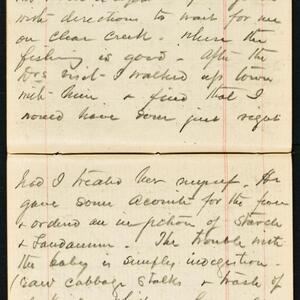 with directions to wait for me
on Clear Creek - where the
fishing is good - After the
Drs visit - I walked up town
with him & find that I
would have done just right
had I treated her myself. He
gave some Aconite for the fever
& ordered an injection of Starch
& Laudanum. The trouble with
the baby is simply indigestion -
(raw cabbage stalks & trash of